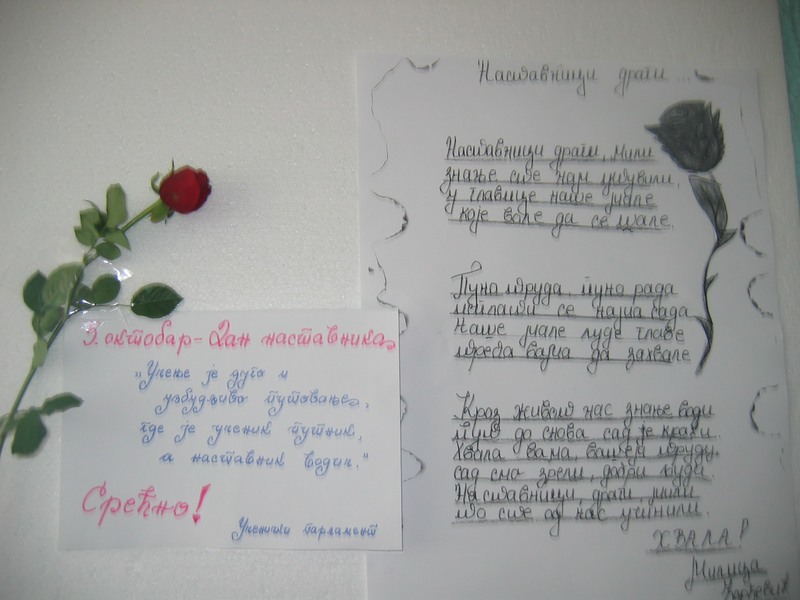 Наставници драги...
Наставници драги, мили
знање сте нам уливили,
у главице наше мале
које воле да се шале.
Пуно труда, пуно рада
исплати се нама сада
Наше мале луде главе
треба вама да захвале
Кроз живот нас знање води
пут до снова сад је краћи.
Хвала вама, вашем труду,
сад смо зрели, добри људи.
Наставници, драги, мили
то сте од нас учинили.
ХВАЛА!
Милица
5. октобар - Дан наставника
„Учење је дуго и
узбудљиво путовање,
где је ученик путник,
а наставник водич."
Срећно!
Ученички парламент